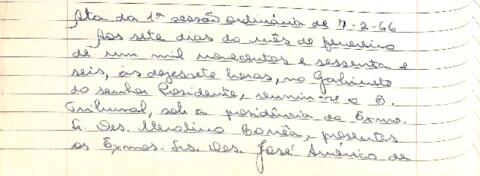 Ata da 1ª sessão ordinária de 7-2-66
Aos sete dias do mês de fevereiro
de um mil novecentos e sessenta e
seis, às dezessete horas, no Gabinete
do senhor Presidente, reuniu-se o E.
Tribunal, sob a presidência do Exmo.
Sr. Des. Corrêa, presentes
os Exmos. Srs. Des. José Américo de